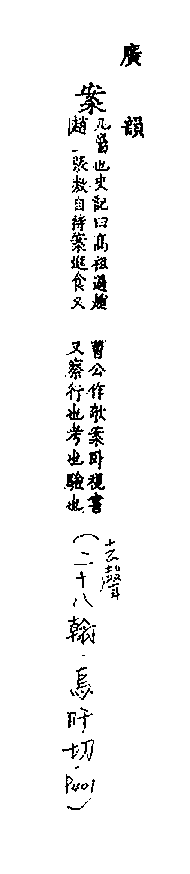 廣韻
案
几屬也史記曰高祖過趙
趙王張敖自持案進食又
曹公作欹案臥視書
又察行也考也驗也
去聲
(二十八翰．烏旰切．P401)